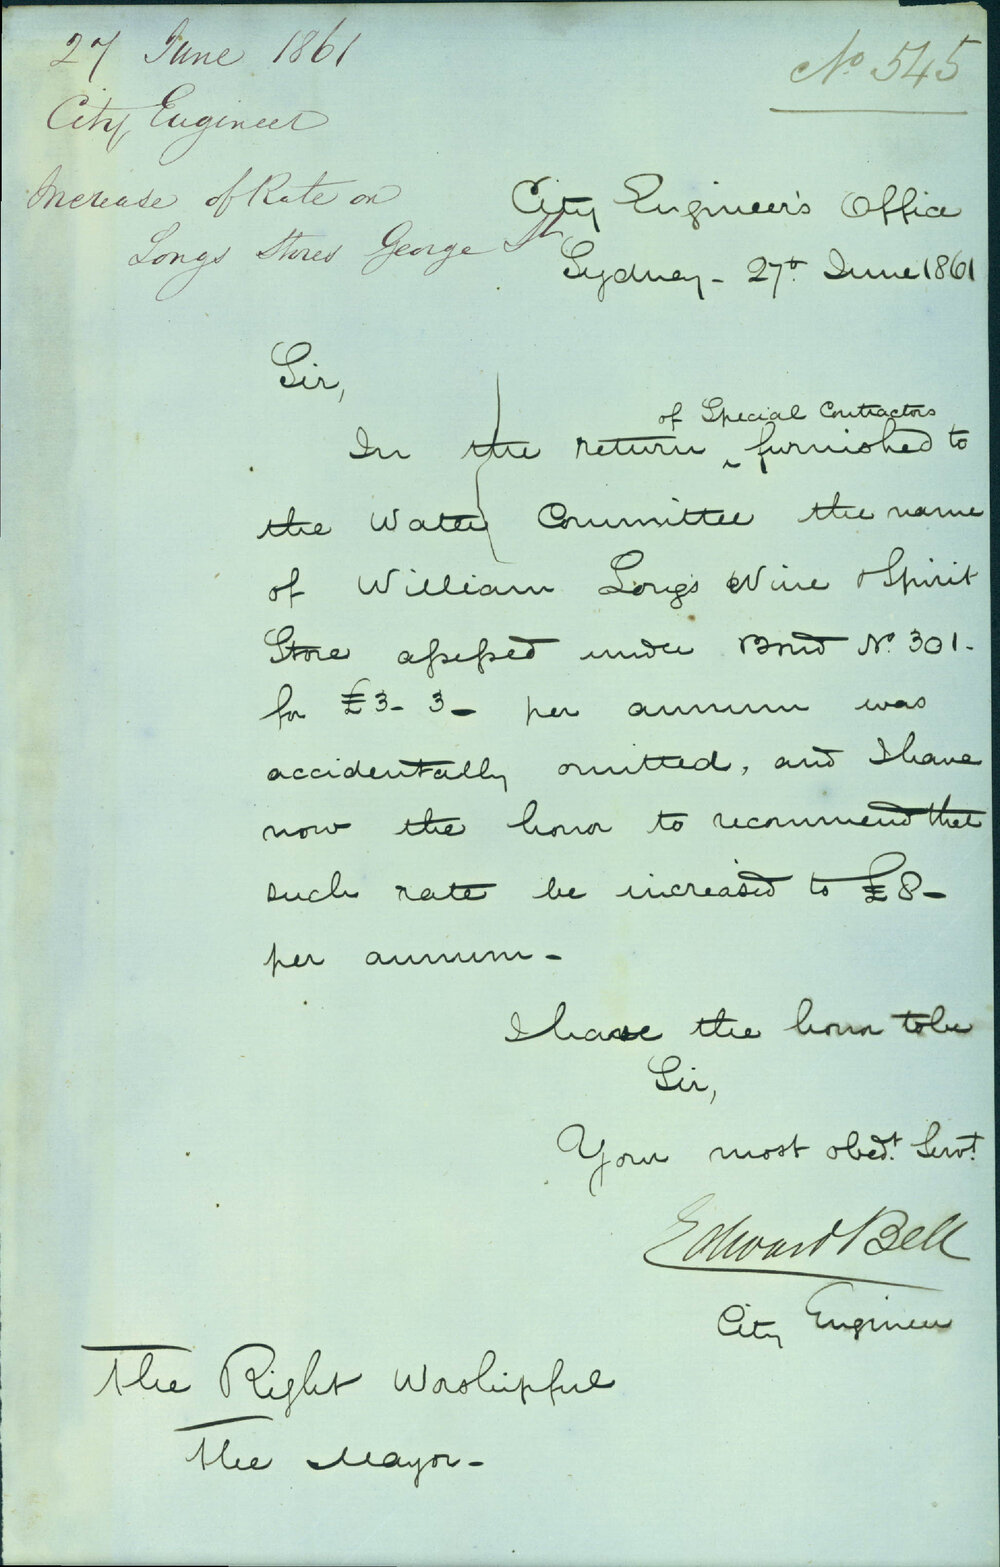 27 June 1861
City Engineer
Increase of Rate on
Longs Stores George St
No 545
City Engineer's Office
Sydney - 27th June 1861
Sir,
of Special Contractors
In the return ^ furnished to
the Water Committee the name
of William Long's Wine & Spirit
Store assessed under Bond No. 301.
for £3-3- per annum was
accidentally omitted, and I have
now the honor to recommend that
such rate be increased to £8-
per annum -
I have the honor to be
Sir,
Your most obedt. Servt.
Edward Bell
City Engineer
The Right Worshipful
The Mayor -